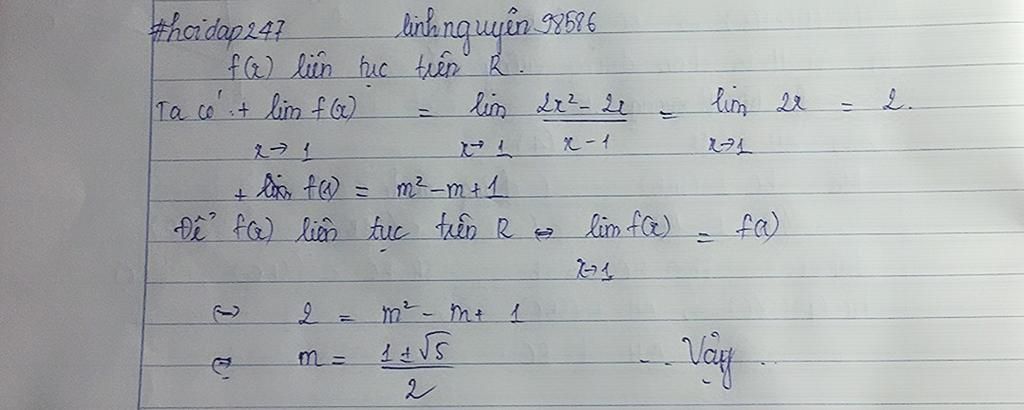 #hoidap247 linhnguyên98586
f(x) liên tục trên R.
Ta có : + lim f(x) = lim (2x² - 2x)/(x - 1) = lim 2x = 2.
x→1 x→1 x→1
+ f(1) = m² - m + 1
Để f(x) liên tục trên R ⇔ lim f(x) = f(1)
x→1
⇔ 2 = m² - m + 1
⇔ m = (1 ± √5)/2 ... Vậy ...